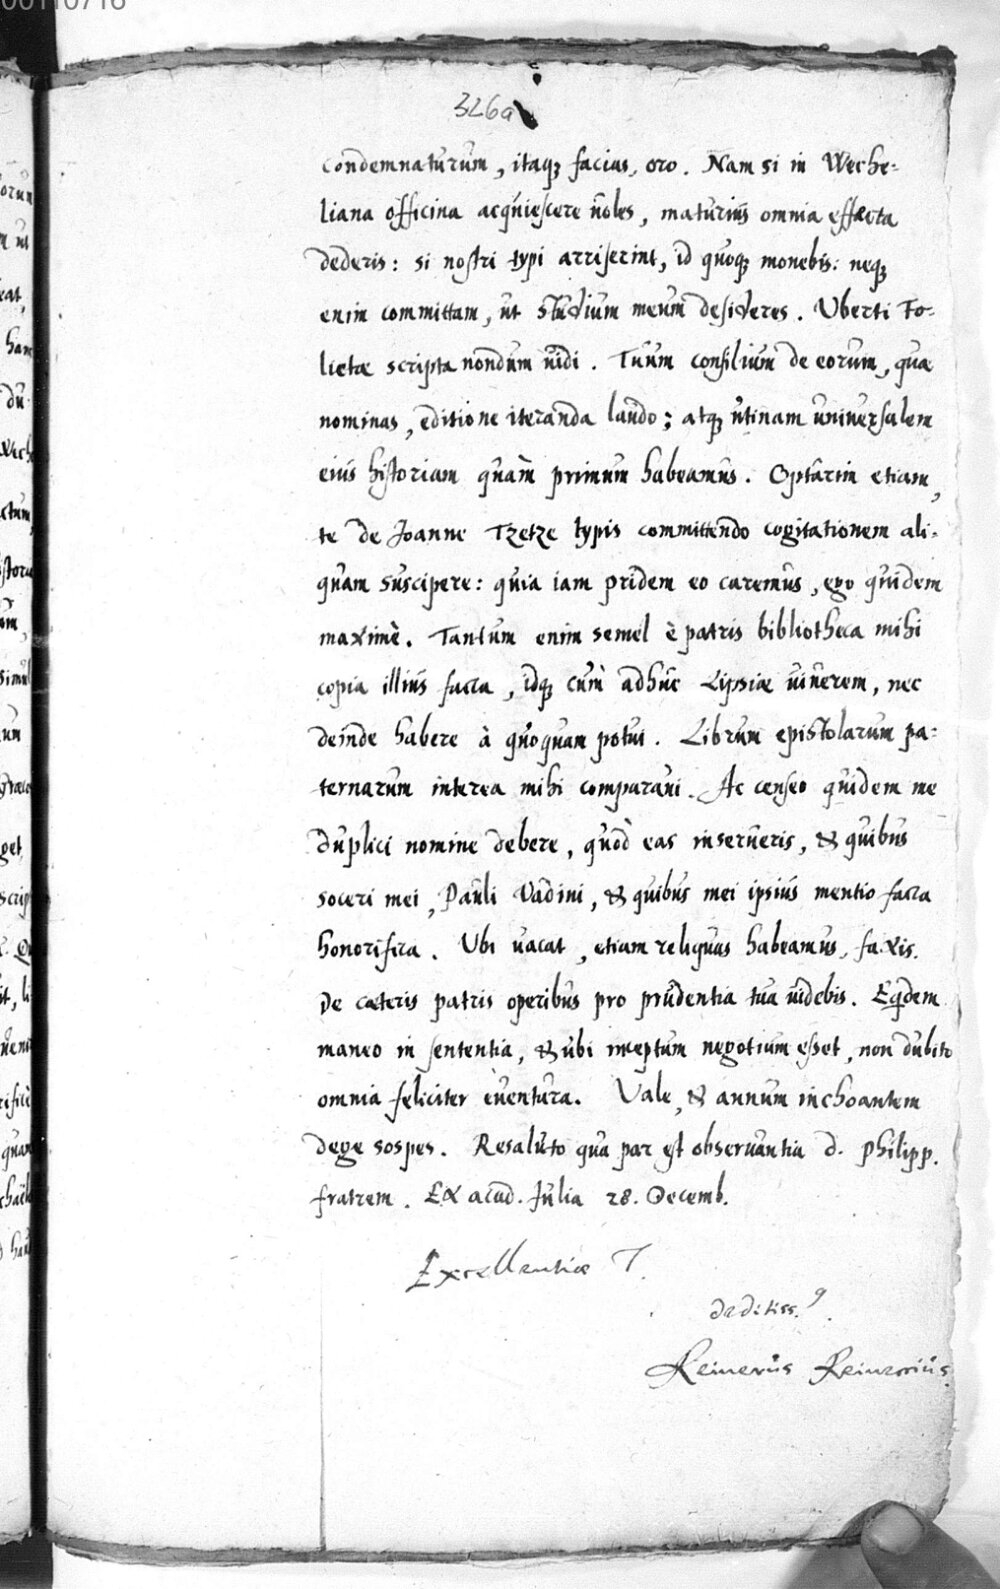 00110716
326a
condemnaturum, itaq; facias, oro. Nam si in Weche-
liana officina acquiescere uoles, maturius omnia effecta
dederis: si nostri typi arriserint, id quoq; monebis: neq;
enim committam, ut studium meum desideres. Vberti Fo-
lietæ scripta nondum uidi. Tuum consilium de eorum, quæ
nominas, editione iteranda laudo; atq; utinam uniuersalem
eius historiam quàm primum habeamus. Optarim etiam,
te de Joanne Tzetze typis committendo cogitationem ali-
quam suscipere: quia iam pridem eo caremus, ego quidem
maximè. Tantum enim semel è patris bibliotheca mihi
copia illius facta, idq; cùm adhuc Lipsiæ uiuerem, nec
deinde habere à quoquam potui. Librum epistolarum pa-
ternarum interea mihi comparaui. Ac censeo quidem me
duplici nomine debere, quòd eas inserueris, & quibus
soceri mei, Pauli Vadini, & quibus mei ipsius mentio facta
honorifica. Vbi uacat, etiam reliquas habeamus, faxis.
De cæteris patris operibus pro prudentia tua uidebis. Eqdem
maneo in sententia, & ubi inceptum negotium esset, non dubito
omnia feliciter euentura. Vale, & annum inchoantem
dege sospes. Resaluto qua par est obseruantia d. Philipp.
fratrem. Ex acad. Julia 28. Decemb.
Excellentiæ T.
deditiss.9
Reinerus Reineccius.